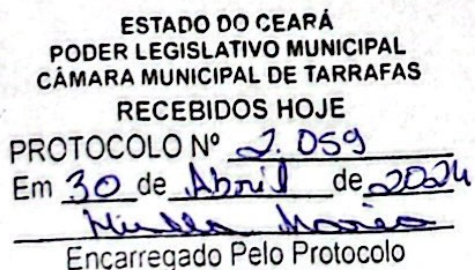 ESTADO DO CEARÁ
PODER LEGISLATIVO MUNICIPAL
CÂMARA MUNICIPAL DE TARRAFAS
RECEBIDOS HOJE
PROTOCOLO Nº 2.059
Em 30 de Abril de 2024
Encarregado Pelo Protocolo